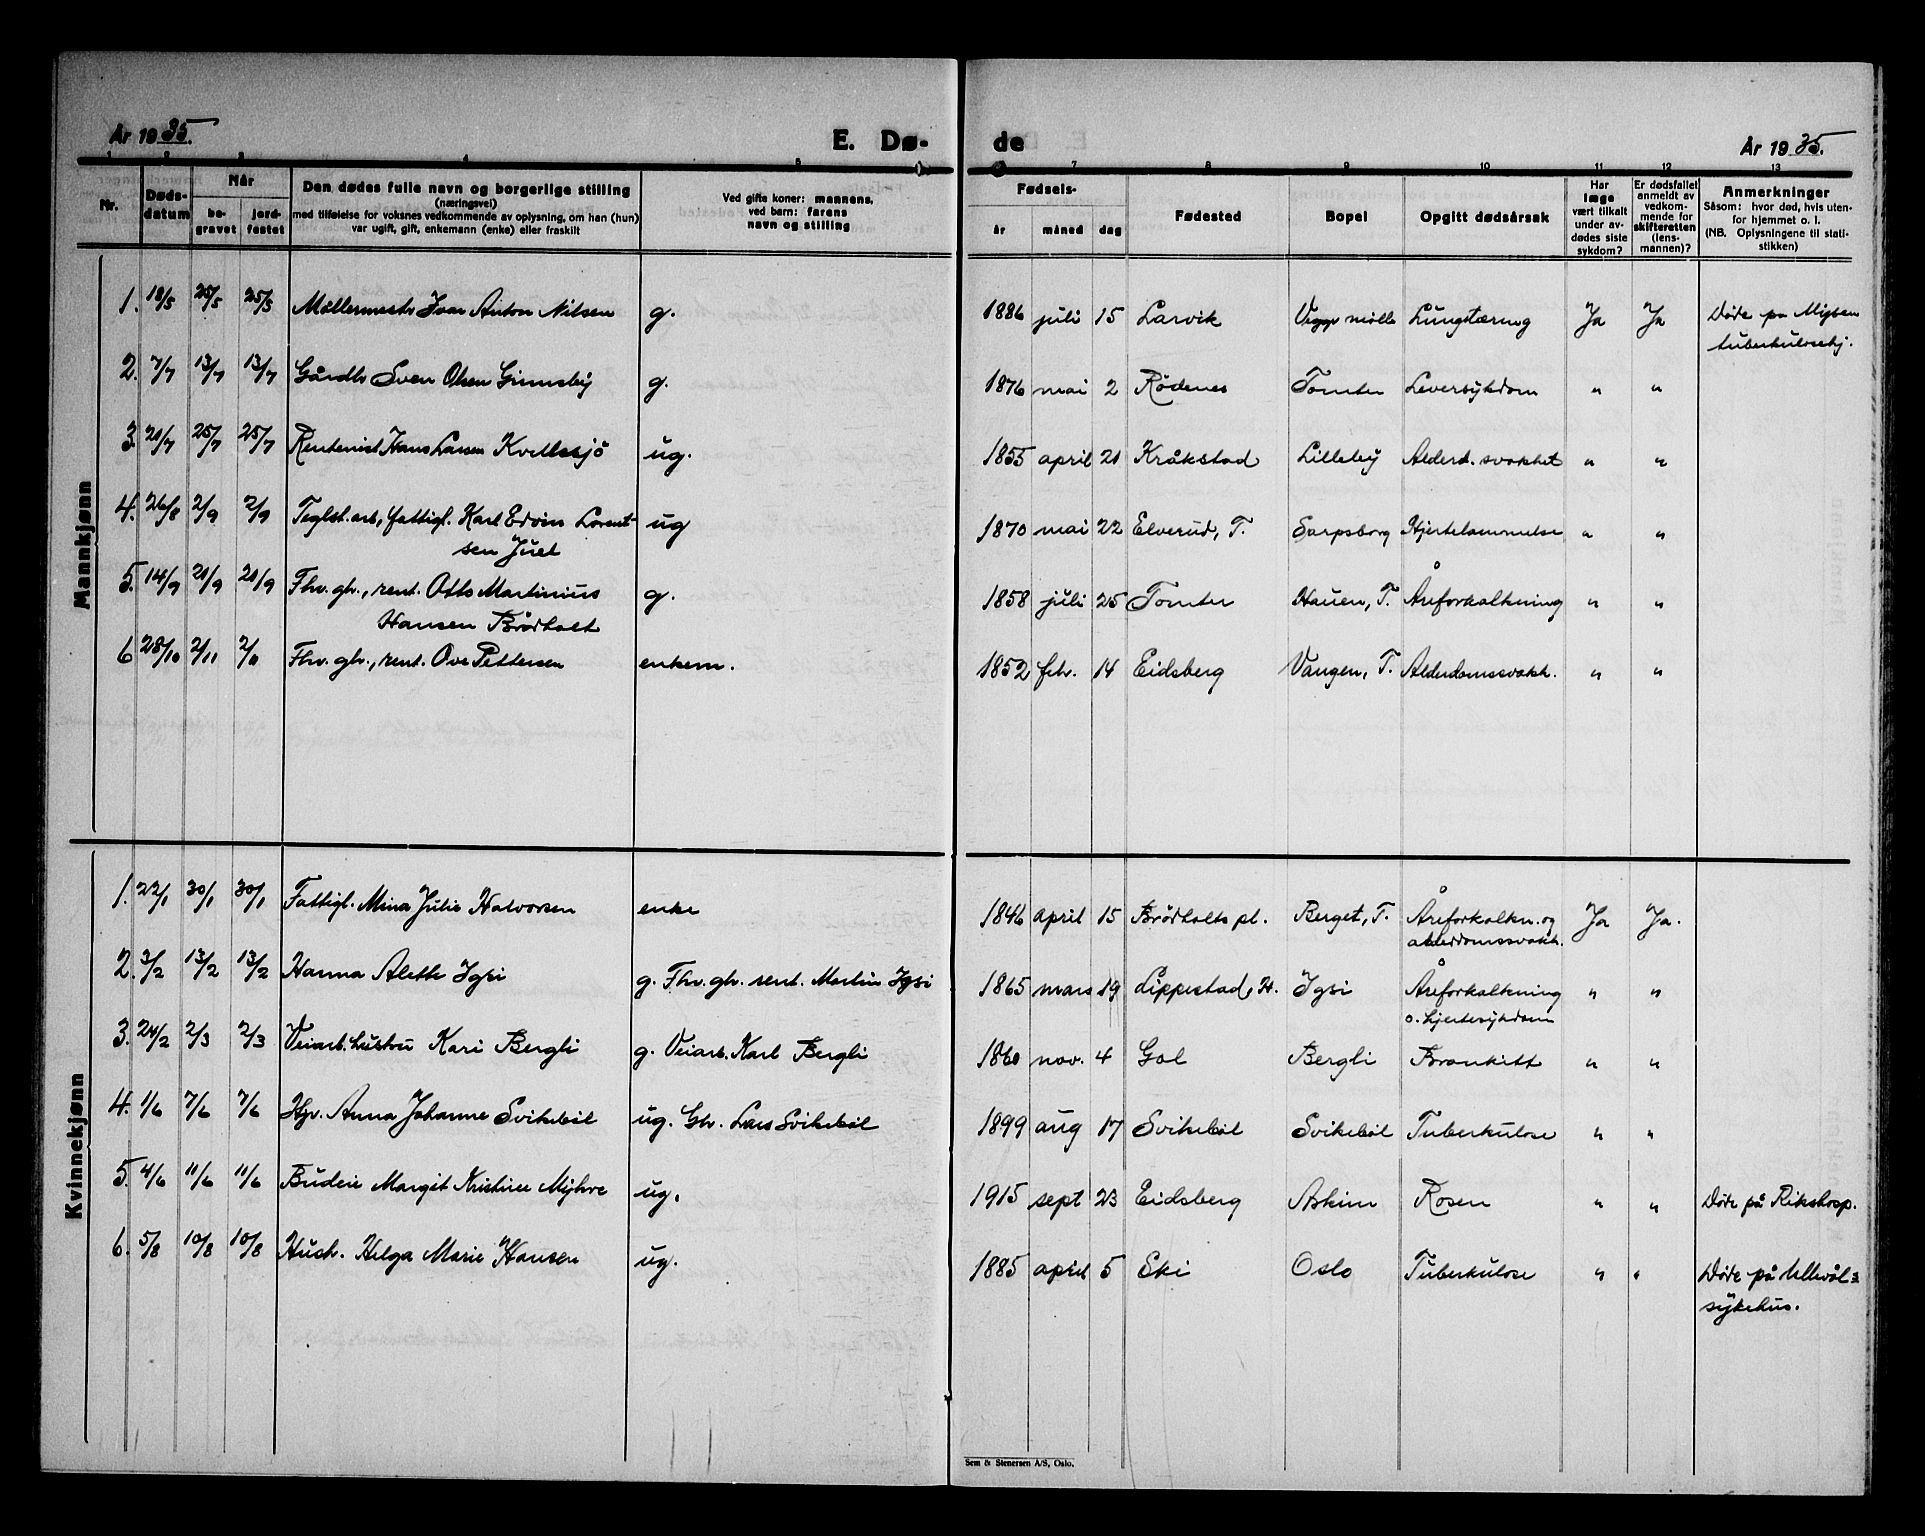 År 1935.
E. Dø-
de
År 1935.
1 2 3 4 5 6 7 8 9 10 11 12 13
Nr.
Døds-
datum
Når
be-
gravet
jord-
festet
Den dødes fulle navn og borgerlige stilling
(næringsvei)
med tilføielse for voksnes vedkommende av oplysning, om han (hun)
var ugift, gift, enkemann (enke) eller fraskilt
Ved gifte koner: mannens,
ved barn: farens
navn og stilling
Fødsels-
år måned dag
Fødested
Bopel
Opgitt dødsårsak
Har
læge
vært tilkalt
under av-
dødes siste
sykdom?
Er dødsfallet
anmeldt av
vedkom-
mende for
skifteretten
(lens-
mannen)?
Anmerkninger
Såsom: hvor død, hvis uten-
for hjemmet o. l.
(NB. Oplysningene til stati-
stikken)
Mannkjønn
1. 18/5 25/5 25/5 Møllermestr Ivar Anton Nilsen g. 1886 juli 15 Larvik mølle Lungetæring Ja Ja Døde på Mysen
tuberkulosehj.
2. 7/7 13/7 13/7 Gårdbr Sven Olsen Grimsby g. 1876 mai 2 Rødenes Tomter Leversykdom " "
3. 20/7 25/7 25/7 Rentenist Hans Larsen Kvillesjö ug. 1855 april 21 Kråkstad Lilleby Alderd. svakhet " "
4. 26/8 2/9 2/9 Teglst. arb, fattigl. Karl Edvin Lorent-
sen Juel ug 1870 mai 22 Elverud, T. Sarpsborg Hjertelammelse " "
5. 14/9 20/9 20/9 Fhv. gbr., rent. Otto Martinius
Hansen Brødholt g. 1858 juli 25 Tomter Hauen, T. Åreforkalkning " "
6 28/10 2/11 2/11 Fhv. gbr., rent. Ove Pettersen enkem. 1852 febr. 14 Eidsberg Vangen, T. Alderdomssvakh. " "
Kvinnekjønn
1. 22/1 30/1 30/1 Fattigl. Mina Julie Halvorsen enke 1846 april 15 Brødholts pl. Berget, T. Åreforkalkn. og
alderdomssvakh. Ja Ja.
2. 3/2 13/2 13/2 Hanna Alette Igsi g. Fhv. gbr. rent. Martin Igsi 1865 mars 19 Lippestad, H. Igsi Åreforkalkning
o. hjertesykdom " "
3. 24/2 2/3 2/3 Veiarb. hustru Kari Bergli g. Veiarb. Karl Bergli 1860 nov. 4 Gol Bergli Bronkitt " "
4. 1/6 7/6 7/6 Hjv. Anna Johanne Svikebøl ug. Gbr. Lars Svikebøl 1899 aug 17 Svikebøl Svikebøl Tuberkulose " "
5. 4/6 11/6 11/6 Budeie Margit Kristine Myhre ug. 1915 sept 23 Eidsberg Askim Rosen " " Døde på Rikshosp.
6. 5/8 10/8 10/8 Hush. Helga Marie Hansen ug. 1885 april 5 Ski Oslo Tuberkulose " " Døde på Ullevål=
sykehus.
Sem & Stenersen A/S, Oslo.